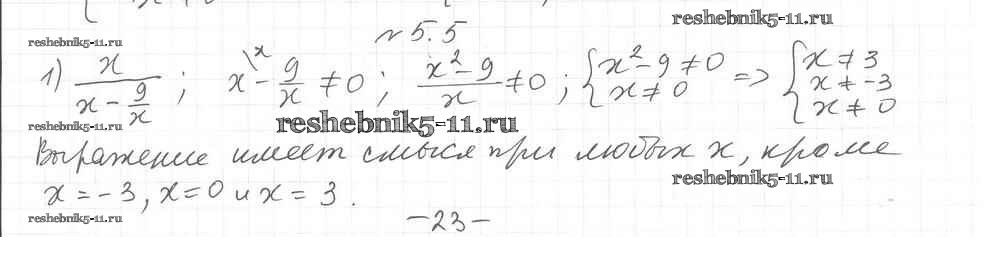 reshebnik5-11.ru
№ 5.5
reshebnik5-11.ru
1) x / (x - 9/x) ; x\x - 9/x ≠ 0 ; (x² - 9)/x ≠ 0 ; { x² - 9 ≠ 0 x ≠ 0 => { x ≠ 3 x ≠ -3 x ≠ 0
reshebnik5-11.ru
reshebnik5-11.ru
Выражение имеет смысл при любых x, кроме
reshebnik5-11.ru
x = -3, x = 0 и x = 3.
reshebnik5-11.ru
-23-